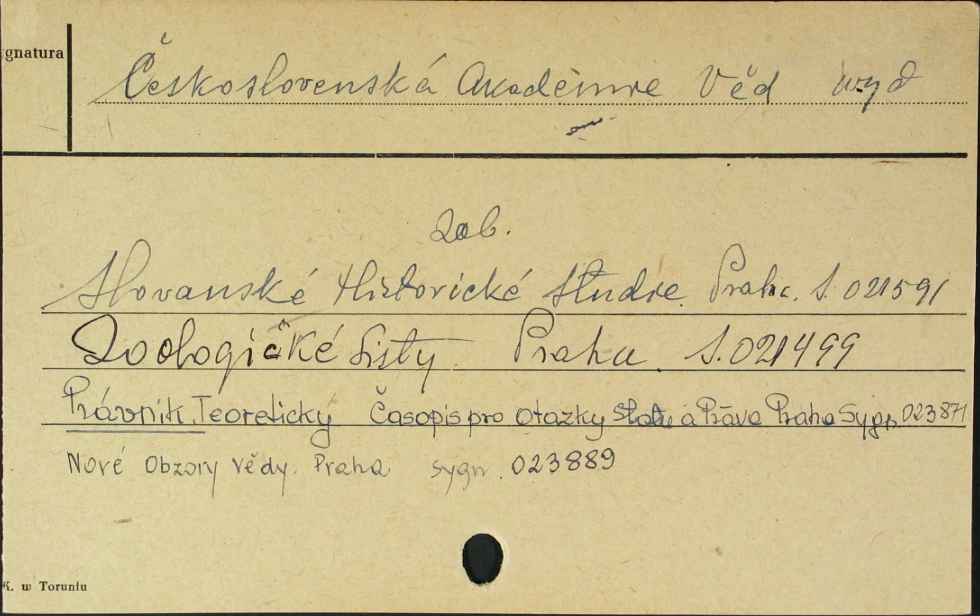 gnatura
Československá Akadémie Věd wyd
Zob.
Slovanské Historické Studie. Praha. S. 021591
Zoologičké Listy. Praha. S. 021499
Právnik. Teoretický Časopis pro otazky Statu a Práva Praha Sygn. 023871
Nové Obzory Vědy. Praha sygn. 023889
K. w Toruniu